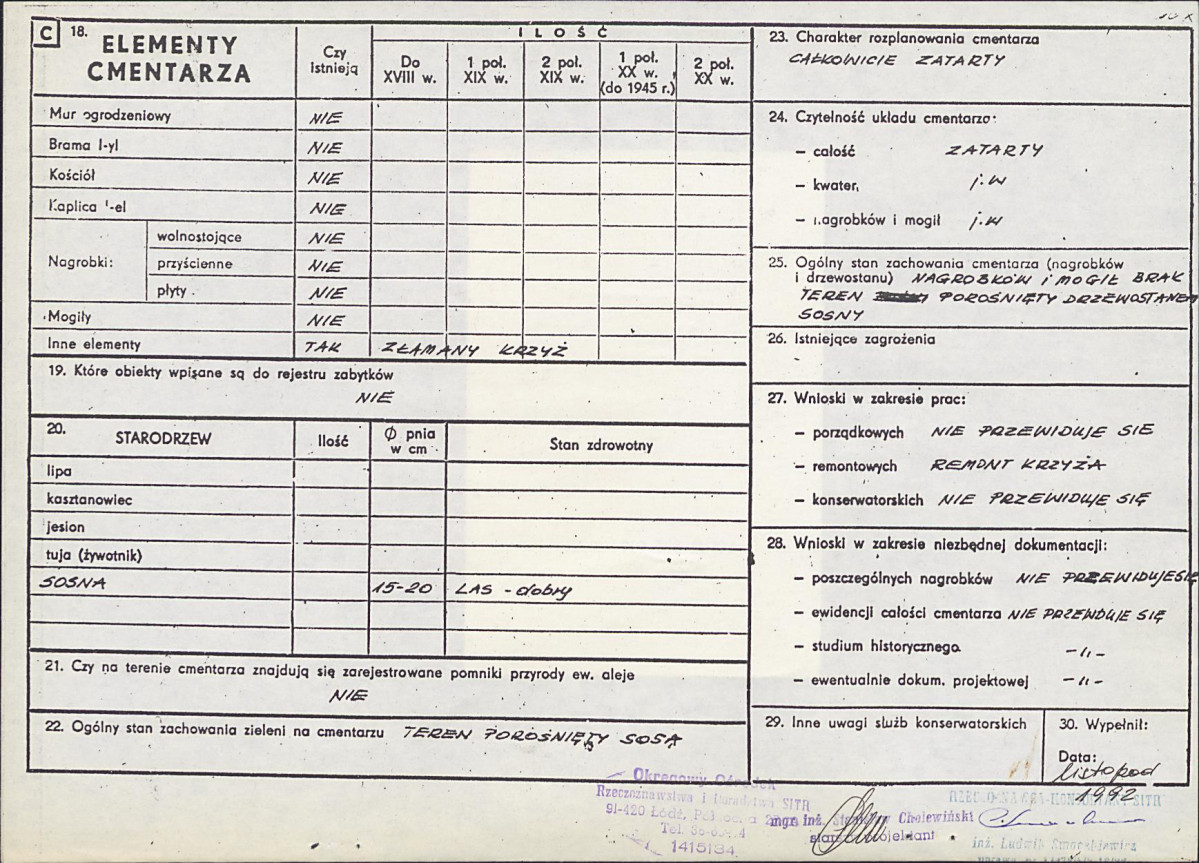 C 18.
ELEMENTY
CMENTARZA
Czy
istnieją
ILOŚĆ
Do
XVIII w.
1 poł.
XIX w.
2 poł.
XIX w.
1 poł.
XX w.
(do 1945 r.)
2 poł.
XX w.
Mur ogrodzeniowy NIE
Brama NIE
Kościół NIE
Kaplica NIE
Nagrobki:
wolnostojące NIE
przyścienne NIE
płyty NIE
Mogiły NIE
Inne elementy TAK ZŁAMANY KRZYŻ
19. Które obiekty wpisane są do rejestru zabytków
NIE
20. STARODRZEW
Ilość
Ø pnia
w cm
Stan zdrowotny
lipa
kasztanowiec
jesion
tuja (żywotnik)
SOSNA 15-20 LAS - dobry
21. Czy na terenie cmentarza znajdują się zarejestrowane pomniki przyrody ew. aleje
NIE
22. Ogólny stan zachowania zieleni na cmentarzu TEREN POROŚNIĘTY SOSĄ
23. Charakter rozplanowania cmentarza
CAŁKOWICIE ZATARTY
24. Czytelność układu cmentarza:
- całość ZATARTY
- kwater, j.w
- nagrobków i mogił j.w
25. Ogólny stan zachowania cmentarza (nagrobków
i drzewostanu) NAGROBKÓW i MOGIŁ BRAK
TEREN POROŚNIĘTY DRZEWOSTANEM
SOSNY
26. Istniejące zagrożenia
-
27. Wnioski w zakresie prac:
- porządkowych NIE PRZEWIDUJE SIE
- remontowych REMONT KRZYŻA
- konserwatorskich NIE PRZEWIDUJE SIĘ
28. Wnioski w zakresie niezbędnej dokumentacji:
- poszczególnych nagrobków NIE PRZEWIDUJE SIĘ
- ewidencji całości cmentarza NIE PRZEWDUJE SIĘ
- studium historycznego -"-
- ewentualnie dokum. projektowej -"-
29. Inne uwagi służb konserwatorskich
30. Wypełnił:
Data:
listopad
1992
Okręgowy Ośrodek
Rzeczoznawstwa i Doradztwa SITR
91-420 Łódź,
Tel.
1415134
mgr inż. Chelewiński
inż. Ludwik